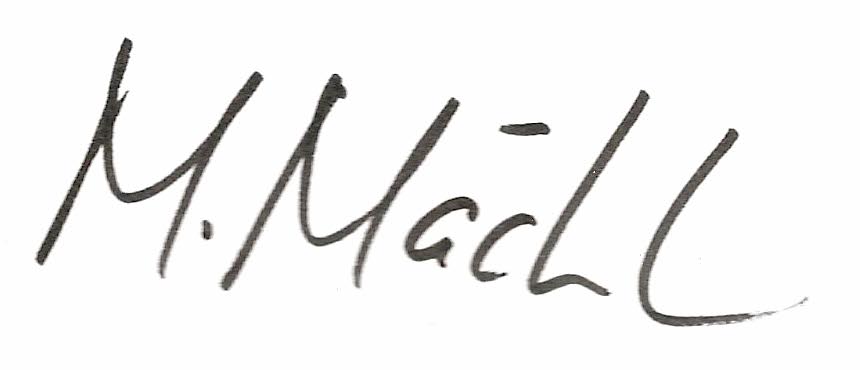 M. Mächl